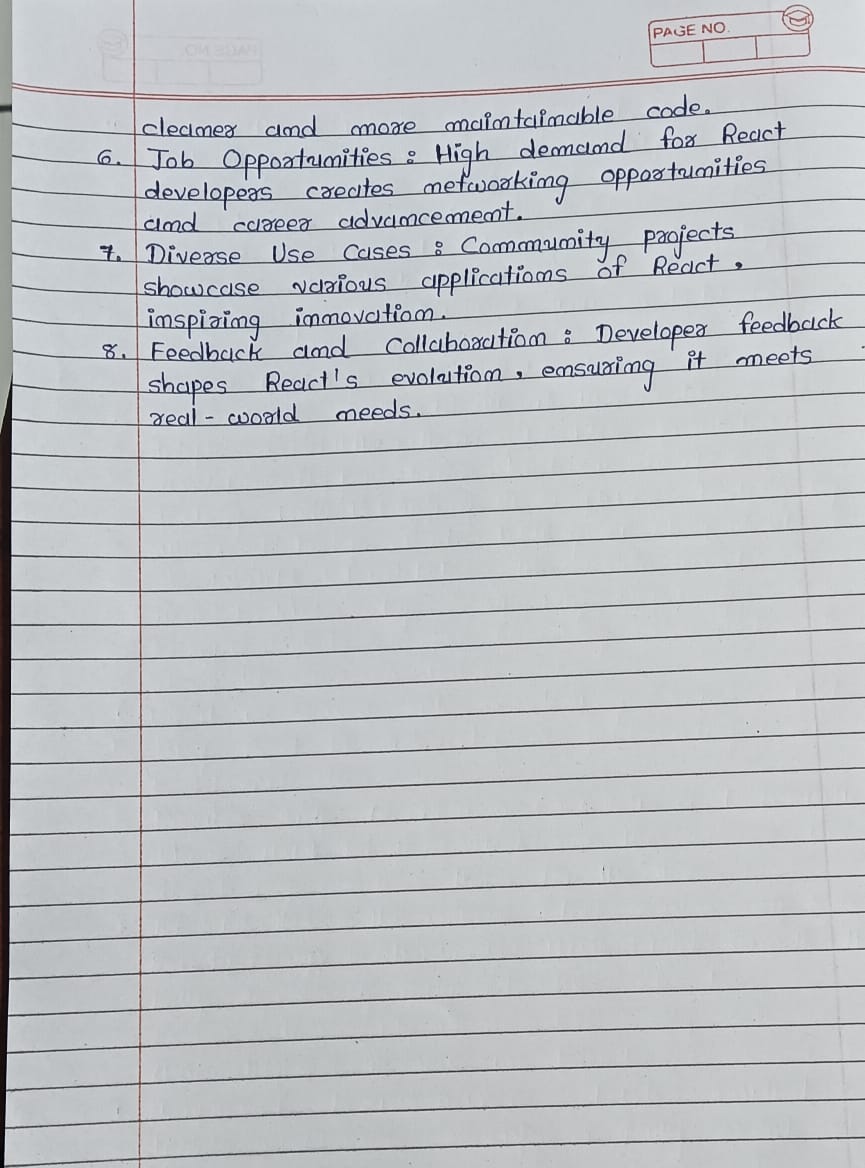 PAGE NO.
cleaner and more maintainable code.
6. Job Opportunities : High demand for React
developers creates networking opportunities
and career advancement.
7. Diverse Use Cases : Community projects
showcase various applications of React,
inspiring innovation.
8. Feedback and Collaboration : Developer feedback
shapes React's evolution, ensuring it meets
real-world needs.